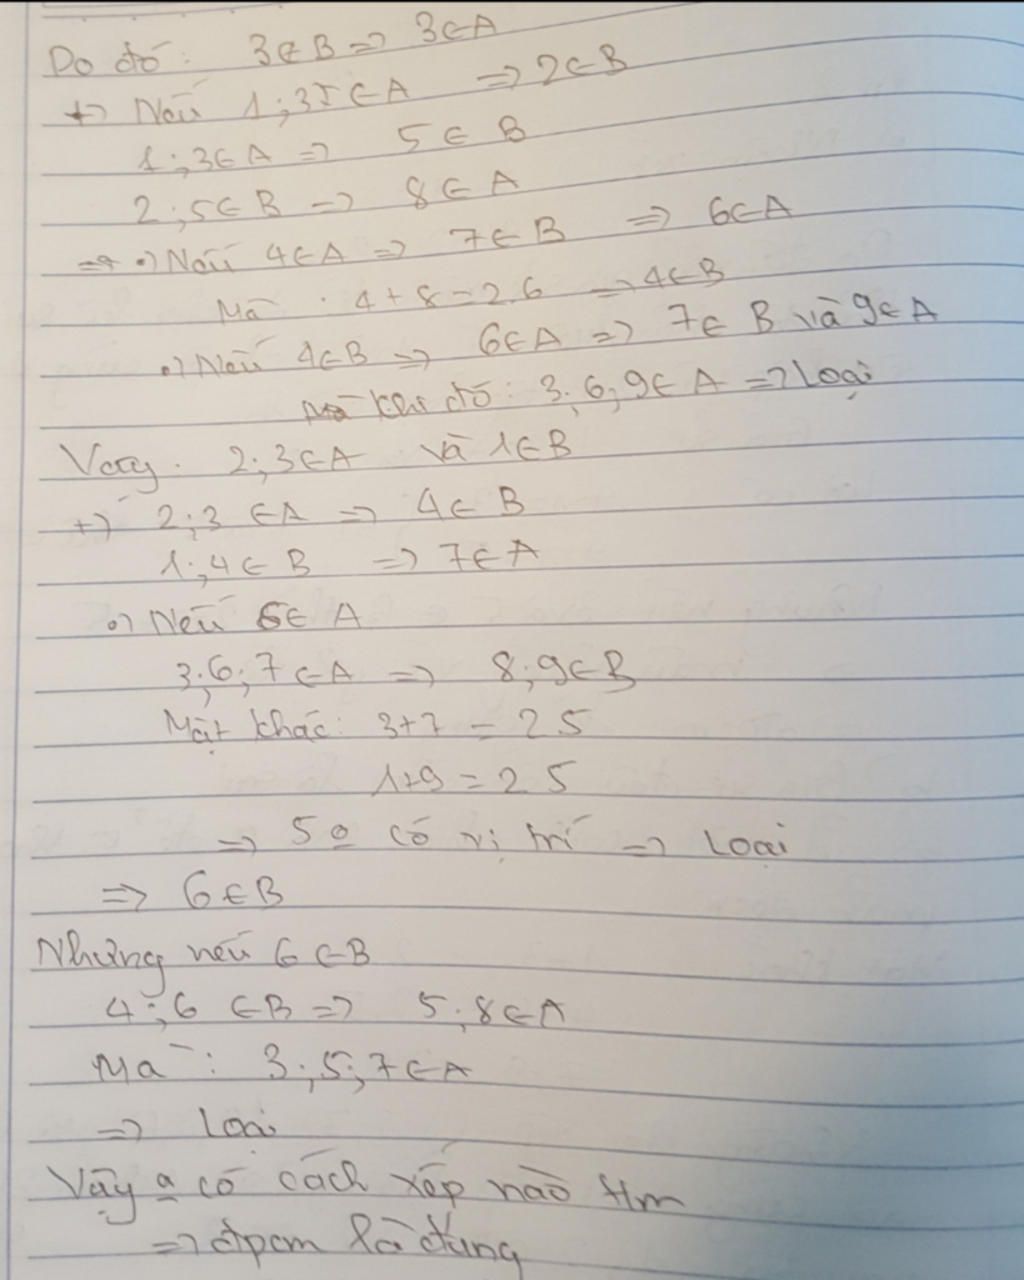 Do đó: 3∉B => 3∈A
+) Nếu 1;3∈A => 2∈B
1;3∈A => 5∈B
2;5∈B => 8∈A
=> •) Nếu 4∈A => 7∈B => 6∈A
Mà: 4+8=2.6 => 4∈B
•) Nếu 4∈B => 6∈A => 7∈B và 9∈A
khi đó: 3;6;9∈A => Loại
Vậy: 2;3∈A và 1∈B
+) 2;3∈A => 4∈B
1;4∈B => 7∈A
•) Nếu 6∈A
3;6;7∈A => 8;9∈B
Mặt khác: 3+7=2.5
1+9=2.5
=> 5 o có vị trí => Loại
=> 6∈B
Nhưng nếu 6∈B
4;6∈B => 5;8∈A
Mà: 3;5;7∈A
=> Loại
Vậy o có cách xếp nào t/m
=> đpcm là đúng